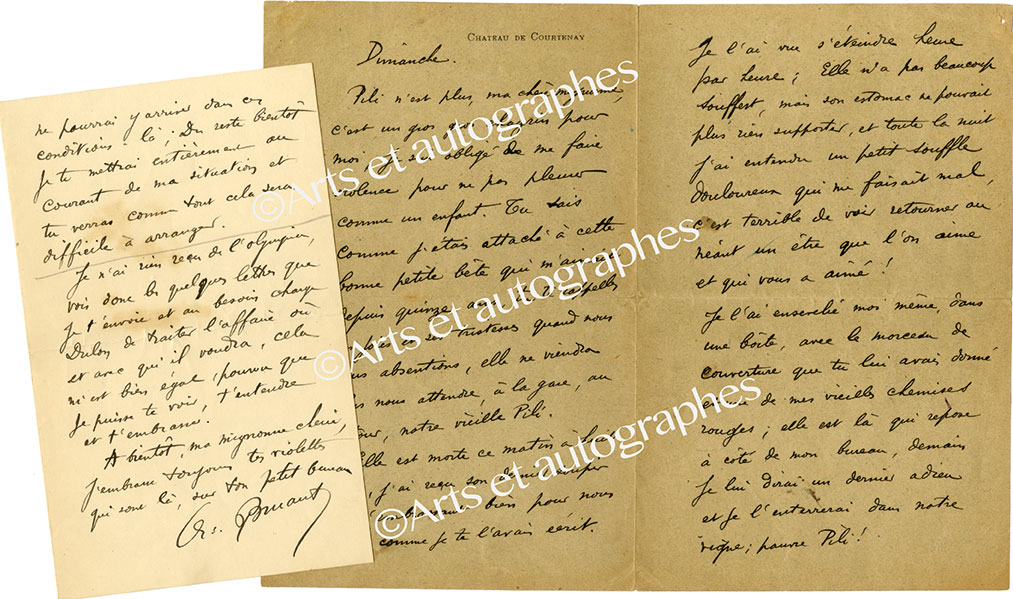 CHATEAU DE COURTENAY
Dimanche.
Pili n'est plus, ma chère mignonne,
c'est un gros chagrin pour
moi je suis obligé de me faire
violence pour ne pas pleurer
comme un enfant. Tu sais
comme j'étais attaché à cette
bonne petite bête qui m'aimait
depuis quinze ans, tu te rappelles
ses tristesses quand nous
nous absentions, elle ne viendra
plus nous attendre, à la gare, au
notre vieille Pili.
Elle est morte ce matin à
j'ai reçu son dernier soupir
bien pour nous
comme je te l'avais écrit.
Je l'ai vue s'éteindre heure
par heure ; Elle n'a pas beaucoup
souffert, mais son estomac ne pouvait
plus rien supporter, et toute la nuit
j'ai entendu un petit souffle
douloureux qui me faisait mal,
c'est terrible de voir retourner au
néant un être que l'on aime
et qui vous a aimé !
Je l'ai ensevelie moi même, dans
une boîte, avec le morceau de
couverture que tu lui avais donné
et une de mes vieilles chemises
rouges ; elle est là qui repose
à côté de mon bureau, demain
je lui dirai un dernier adieu
et je l'enterrerai dans notre
vigne ; pauvre Pili !
ne pourrai y arriver dans ces
conditions-là ; Du reste bientôt
je te mettrai entièrement au
courant de ma situation et
tu verras comme tout cela sera
difficile à arranger.
Je n'ai rien reçu de l'olympia,
vois donc les quelques lettres que
je t'envoie et au besoin charge
Dulon de traiter l'affaire où
et avec qui il voudra, cela
m'est bien égal, pourvu que
je puisse te voir, t'entendre
et t'embrasser.
A bientôt, ma mignonne chérie,
j'embrasse toujours tes violettes
qui sont là, sur ton petit bureau
Ar. Bruant
©Arts et autographes
©Arts et autographes
©Arts et autographes
©Arts et autographes